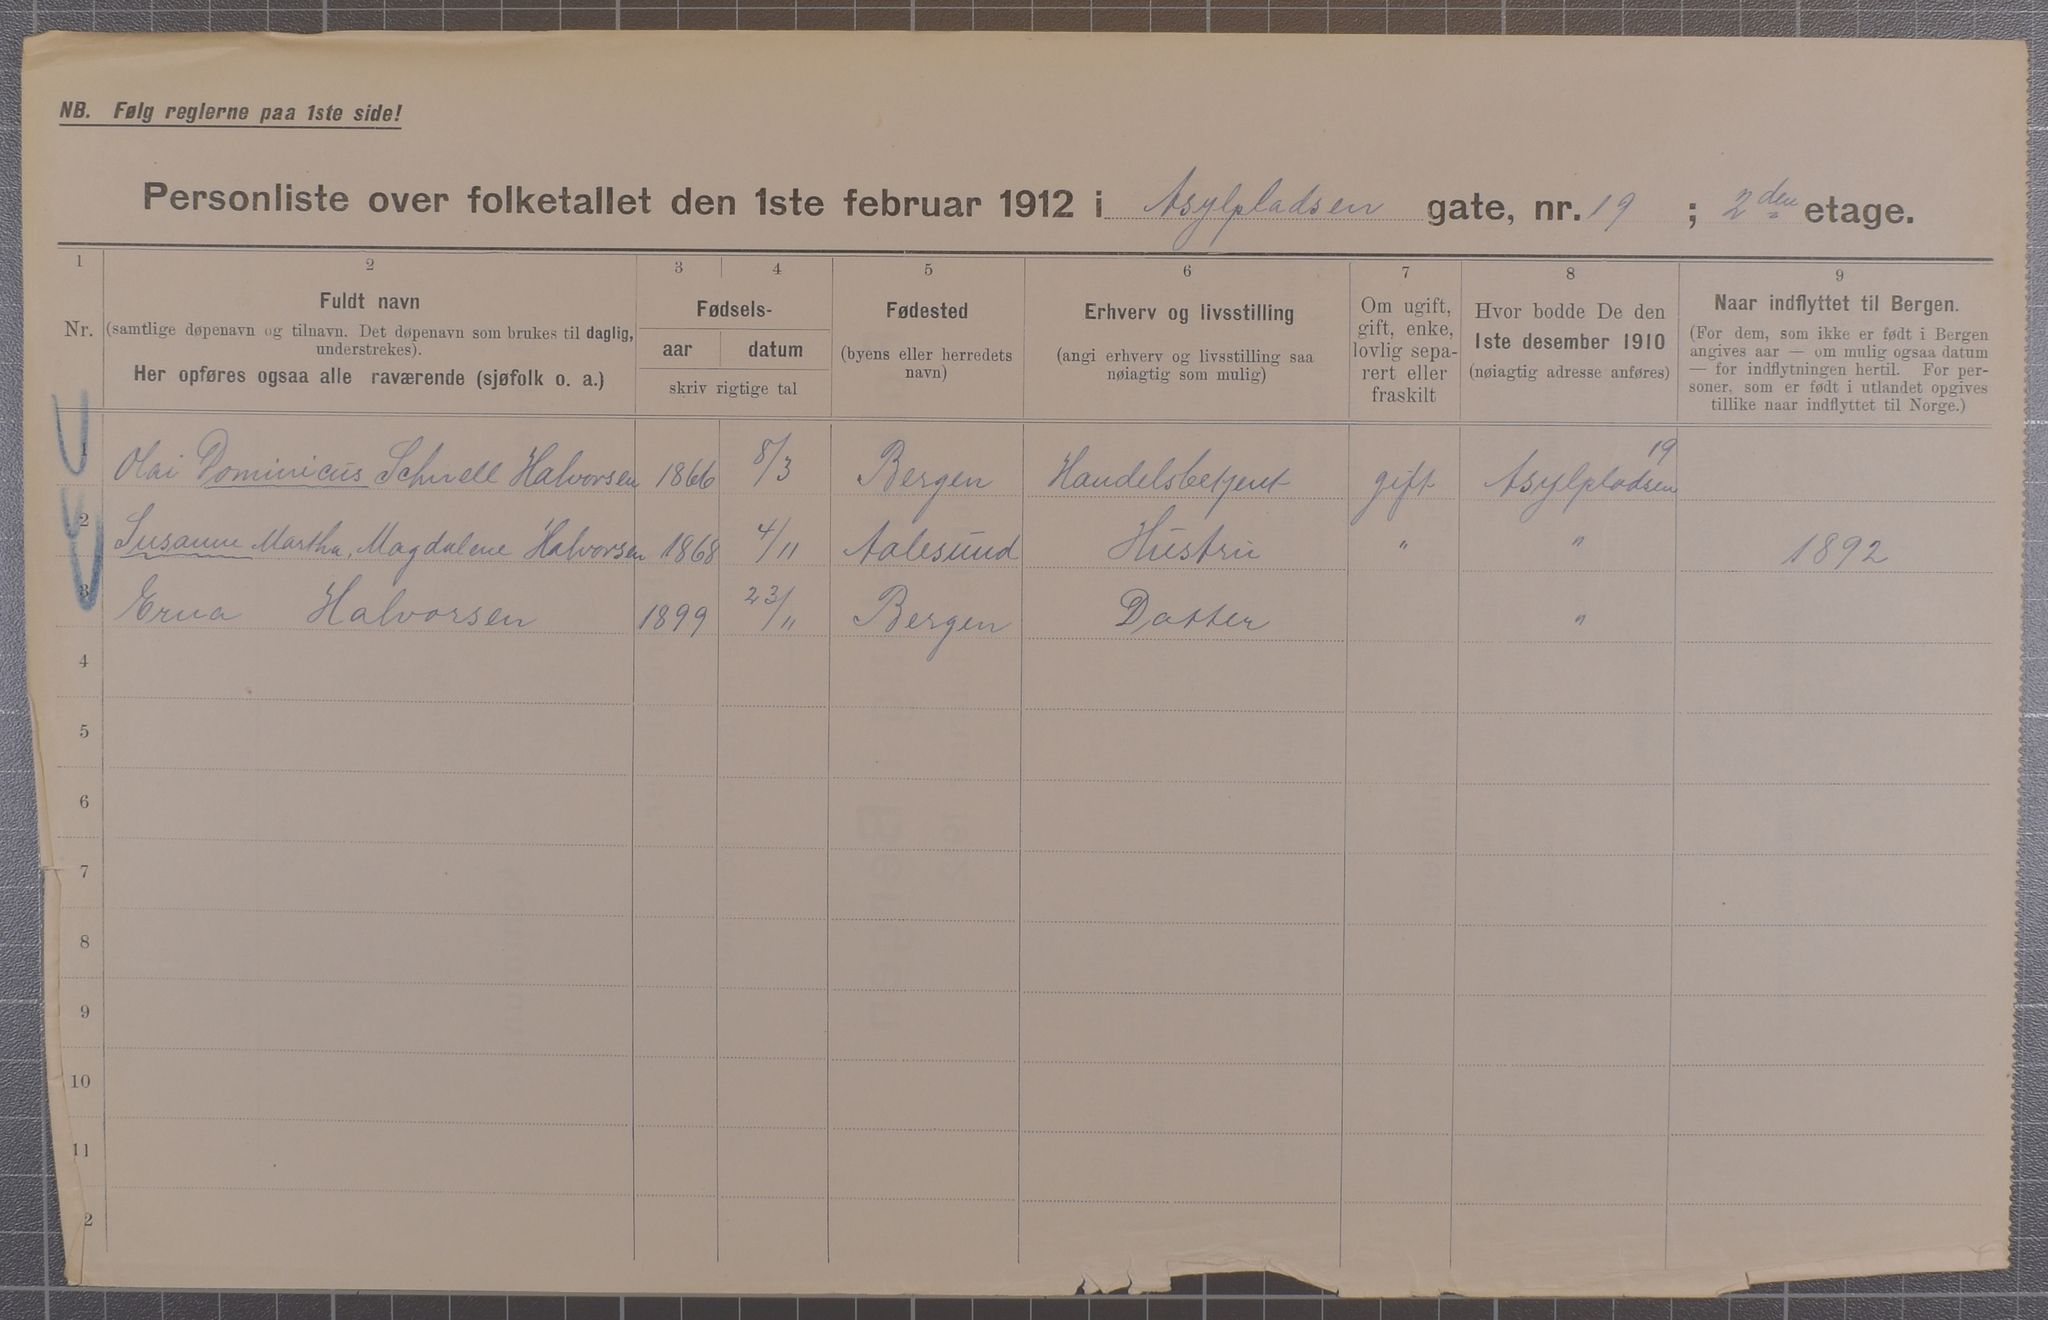 NB. Følg reglerne paa 1ste side!
Personliste over folketallet den 1ste februar 1912 i Asylpladsen gate, nr. 19 ; 2den etage.
1 2 3 4 5 6 7 8 9
Nr.
Fuldt navn
(samtlige døpenavn og tilnavn. Det døpenavn som brukes til daglig,
understrekes).
Her opføres ogsaa alle raværende (sjøfolk o. a.)
Fødsels-
aar datum
skriv rigtige tal
Fødested
(byens eller herredets
navn)
Erhverv og livsstilling
(angi erhverv og livsstilling saa
nøiagtig som mulig)
Om ugift,
gift, enke,
lovlig sepa-
rert eller
fraskilt
Hvor bodde De den
1ste desember 1910
(nøiagtig adresse anføres)
Naar indflyttet til Bergen.
(For dem, som ikke er født i Bergen
angives aar — om mulig ogsaa datum
— for indflytningen hertil. For per-
soner, som er født i utlandet opgives
tillike naar indflyttet til Norge.)
1 Olai Dominicus Schnell Halvorsen 1866 8/3 Bergen Handelsbetjent gift Asylpladsen 19
2 Susanne Martha, Magdalene Halvorsen 1868 4/11 Aalesund Hustru " " 1892
3 Erna Halvorsen 1899 23/11 Bergen Datter "
4
5
6
7
8
9
10
11
2